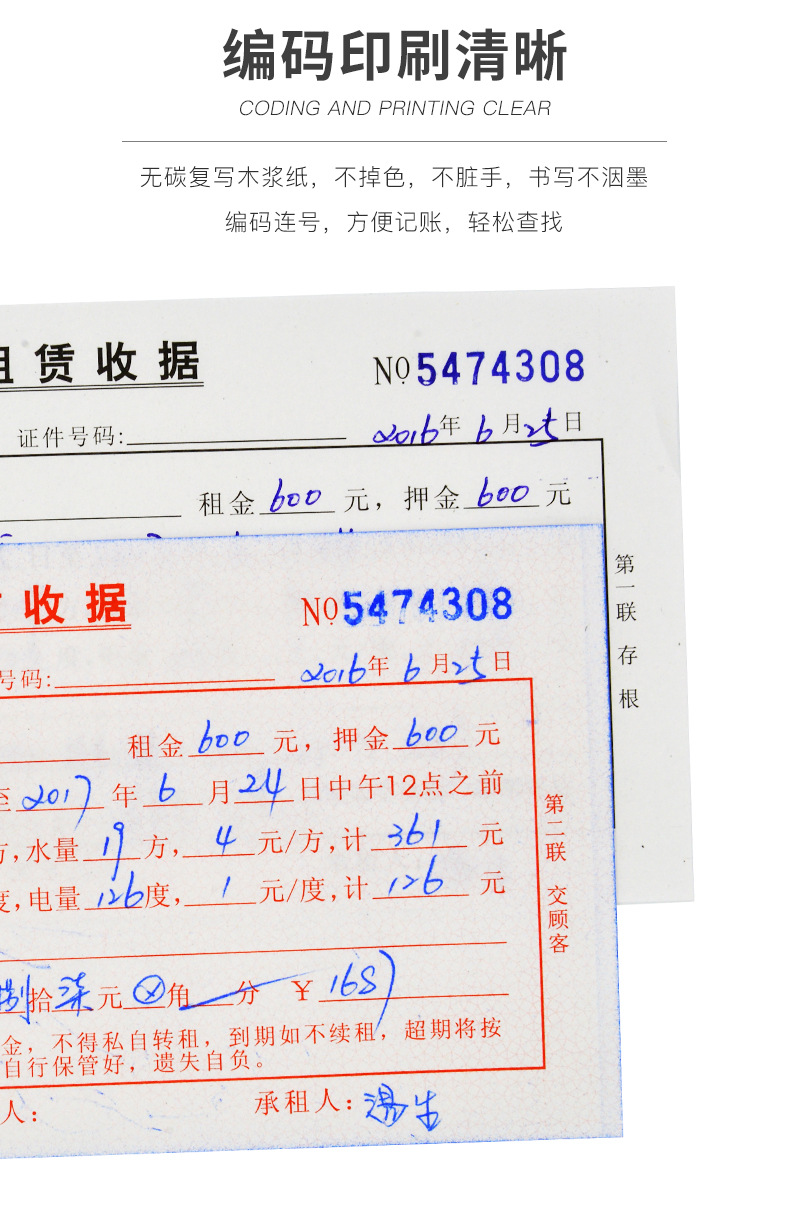 编码印刷清晰
CODING AND PRINTING CLEAR
无碳复写木浆纸，不掉色，不脏手，书写不洇墨
编码连号，方便记账，轻松查找
租赁收据
№5474308
证件号码:
2016年 6 月25日
租金600元，押金600元
第一联 存根
收据
№5474308
号码:
2016年 6 月25日
租金600元，押金600元
至2017年 6 月24日中午12点之前
方,水量19方, 4 元/方,计361元
度,电量126度, 1 元/度,计126元
第二联 交顾客
捌拾柒元⊗角 分 ￥1687
金，不得私自转租，到期如不续租，超期将按
自行保管好，遗失自负。
人:
承租人: